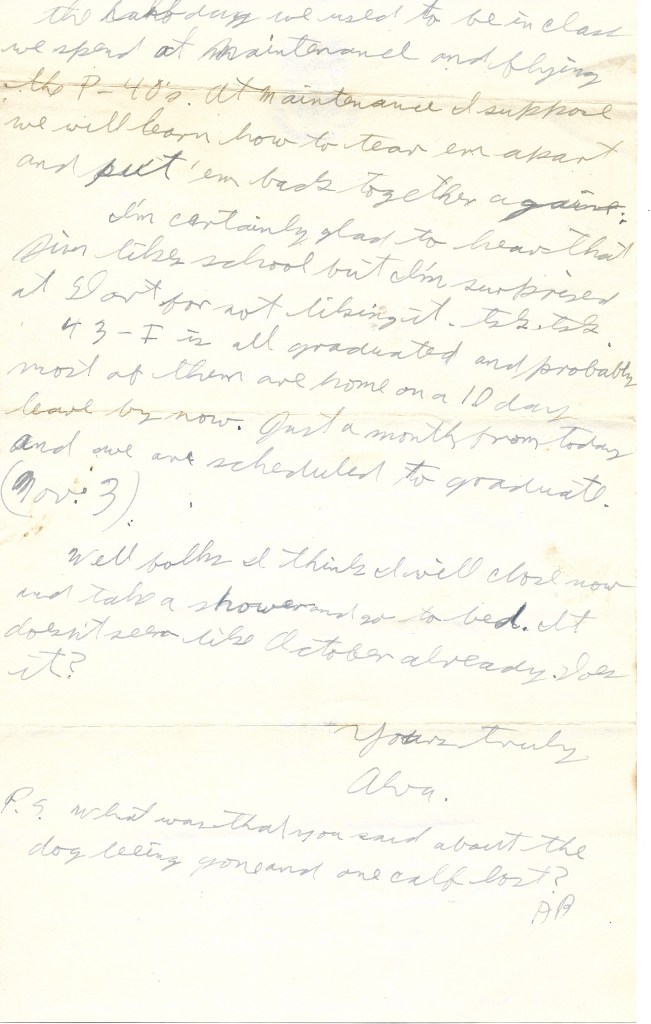 the half day we used to be in class
we spend at maintenance and flying
the P-40's. At maintenance I suppose
we will learn how to tear em apart
and put 'em back together again.
I'm certainly glad to hear that
likes school but I'm surprised
at for not liking it. tsk. tsk.
43-I is all graduated and probably
most of them are home on a 10 day
leave by now. Just a month from today
and we are scheduled to graduate.
(Nov. 3)
Well folks I think I will close now
and take a shower and go to bed. It
doesn't seem like October already. Does
it?
Yours truly
Alva.
P.S. What was that you said about the
dog being gone and one calf lost?